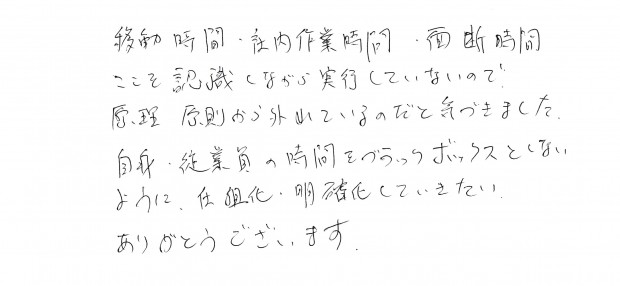 移動時間・社内作業時間・面断時間
ここを認識しながら実行していないので、
原理 原則から外れているのだと気づきました。
自身・従業員の時間をブラックボックスとしない
ように、仕組化・明確化していきたい。
ありがとうございます。